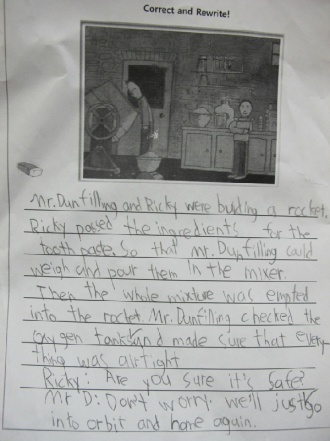 Correct and Rewrite!
Mr. Dunfilling and Ricky were building a rocket.
Ricky passed the ingredients for the
tooth paste. So that mr. Dunfilling could
weigh and pour them in the mixer.
Then the whole mixture was empted
into the rocket. Mr. Dunfilling checked the
oxygen tanks and made sure that every-
thing was airtight
Ricky: Are you sure it's safe?
Mr D: Don't worry. we'll just go
into orbit and home again.